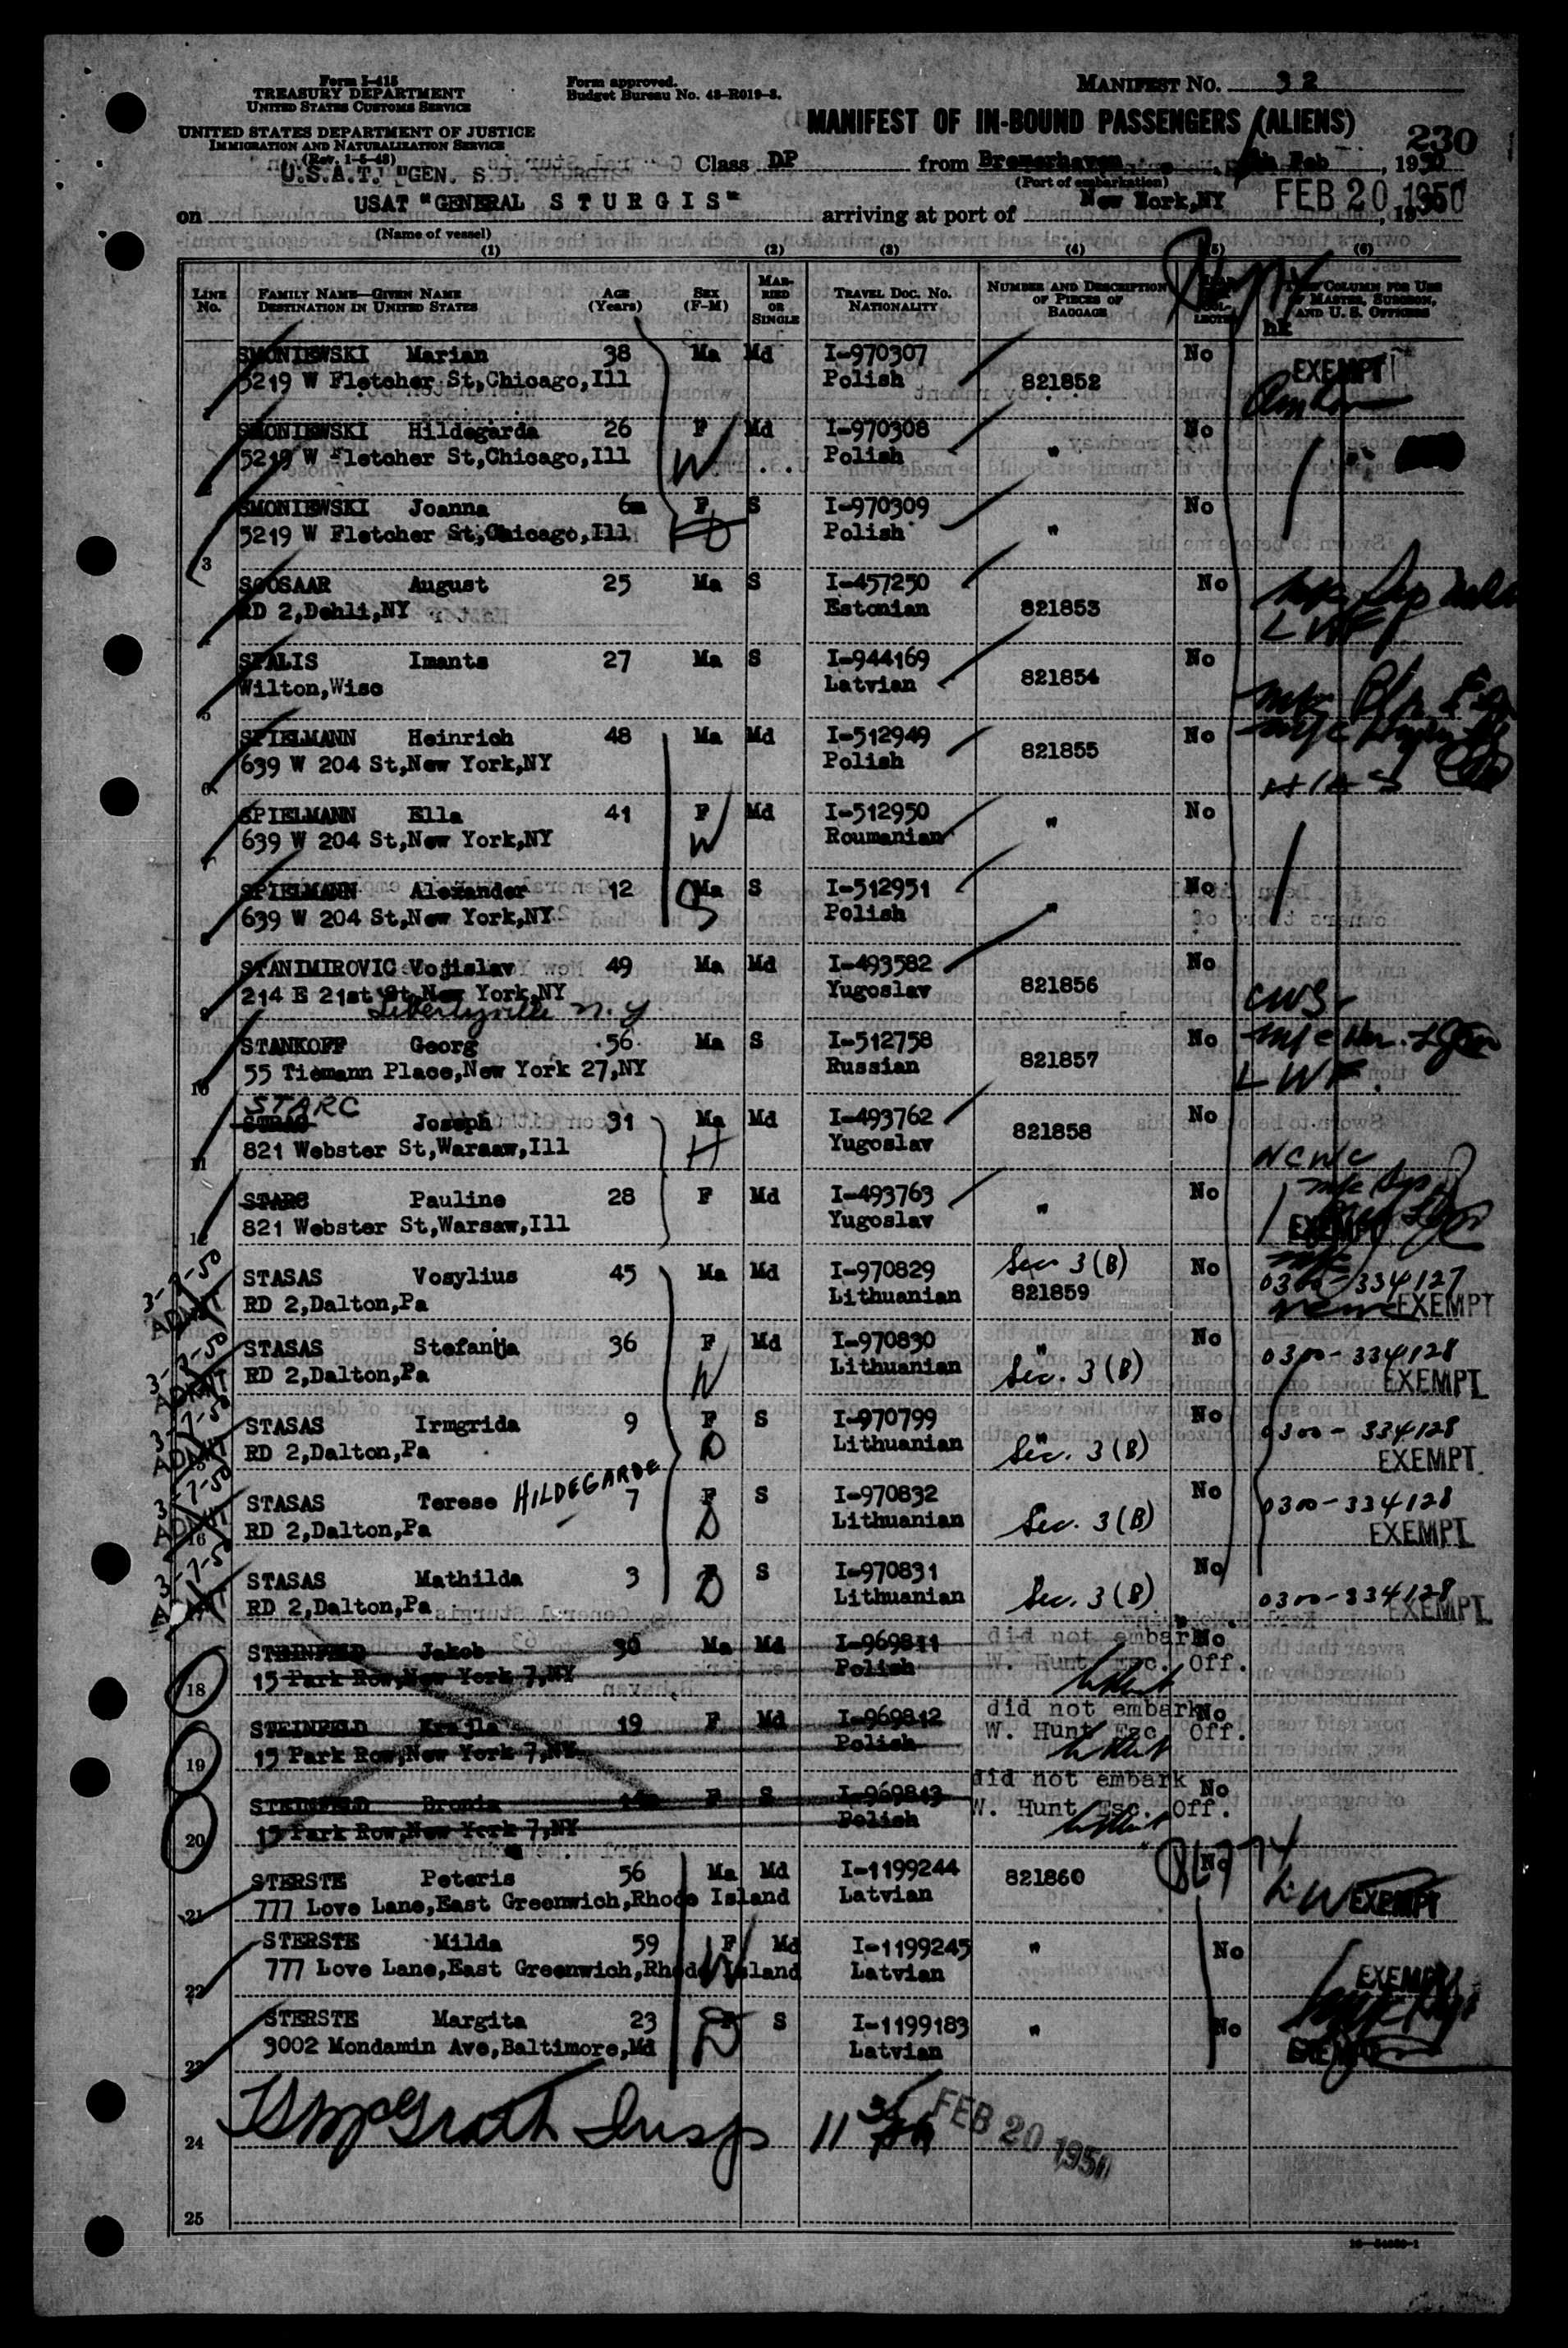 Form I-415
TREASURY DEPARTMENT
UNITED STATES CUSTOMS SERVICE
Form approved.
Budget Bureau No. 43-R019-3.
MANIFEST NO. 32
UNITED STATES DEPARTMENT OF JUSTICE
IMMIGRATION AND NATURALIZATION SERVICE
(Rev. 1-5-48)
MANIFEST OF IN-BOUND PASSENGERS (ALIENS)
230
U.S.A.T. "GEN. S.D.
Class DP from Bremerhaven Feb, 1950
(Port of embarkation)
on USAT "GENERAL STURGIS" arriving at port of New York,NY FEB 20 1950
(Name of vessel)
(1) (2) (3) (4) (5) (6)
LINE No. FAMILY NAME—GIVEN NAME DESTINATION IN UNITED STATES AGE (Years) SEX (F-M) MARRIED OR SINGLE TRAVEL DOC. NO. NATIONALITY NUMBER AND DESCRIPTION OF PIECES OF BAGGAGE COLUMN FOR USE OF MASTER, SURGEON, AND U. S. OFFICERS
SMONIEWSKI Marian 38 Ma Md I-970307 821852 No EXEMPT
5219 W Fletcher St,Chicago,Ill Polish
SMONIEWSKI Hildegarda 26 F Md I-970308 " No
5219 W Fletcher St,Chicago,Ill W Polish
SMONIEWSKI Joanna 6m F S I-970309 " No
3 5219 W Fletcher St,Chicago,Ill D Polish
SOOSAAR August 25 Ma S I-457250 821853 No
RD 2,Dehli,NY Estonian LWF
SPALIS Imants 27 Ma S I-944169 821854 No
5 Wilton,Wisc Latvian
SPIELMANN Heinrich 48 Ma Md I-512949 821855 No
6 639 W 204 St,New York,NY Polish HIAS
SPIELMANN Ella 41 F Md I-512950 " No
639 W 204 St,New York,NY W Roumanian
SPIELMANN Alexander 12 Ma S I-512951 " No
639 W 204 St,New York,NY S Polish
STANIMIROVIC Vojislav 49 Ma Md I-493582 821856 No
9 214 E 21st St,New York,NY Yugoslav CWS
Libertyville N.Y.
STANKOFF Georg 56 Ma S I-512758 821857 No
10 55 Tiemann Place,New York 27,NY Russian LWF.
STARC
Joseph 31 Ma Md I-493762 821858 No
11 821 Webster St,Warsaw,Ill H Yugoslav NCWC
STARC Pauline 28 F Md I-493763 " No
12 821 Webster St,Warsaw,Ill Yugoslav EXEMPT
3-7-50 ADMIT STASAS Vosylius 45 Ma Md I-970829 Sec 3(B) No 0300-334127
RD 2,Dalton,Pa Lithuanian 821859 EXEMPT
3-7-50 ADMIT STASAS Stefanija 36 F Md I-970830 " No 0300-334128
RD 2,Dalton,Pa W Lithuanian Sec. 3(B) EXEMPT
3-7-50 ADMIT STASAS Irmgrida 9 F S I-970799 " No 0300-334128
RD 2,Dalton,Pa D Lithuanian Sec. 3(B) EXEMPT
3-7-50 ADMIT STASAS Terese HILDEGARDE 7 F S I-970832 No 0300-334128
16 RD 2,Dalton,Pa D Lithuanian Sec. 3(B) EXEMPT
3-7-50 STASAS Mathilda 3 D S I-970831 No
RD 2,Dalton,Pa Lithuanian Sec. 3(B) 0300-334128 EXEMPT
STEINFELD Jakob 30 Ma Md I-969811 did not embark No
18 15 Park Row,New York 7,NY Polish W. Hunt Esc. Off.
STEINFELD Krajla 19 F Md I-969812 did not embark No
19 15 Park Row,New York 7,NY Polish W. Hunt Esc. Off.
STEINFELD Bronia F S I-969813 did not embark No
20 15 Park Row,New York 7,NY Polish W. Hunt Esc. Off.
STERSTE Peteris 56 Ma Md I-1199244 821860 No
21 777 Love Lane,East Greenwich,Rhode Island Latvian EXEMPT
STERSTE Milda 59 F Md I-1199245 " No
22 777 Love Lane,East Greenwich,Rhode Island W Latvian EXEMPT
STERSTE Margita 23 S I-1199183 " No
23 3002 Mondamin Ave,Baltimore,Md D Latvian EXEMPT
24 McGrath Insp 11 FEB 20 1950
25